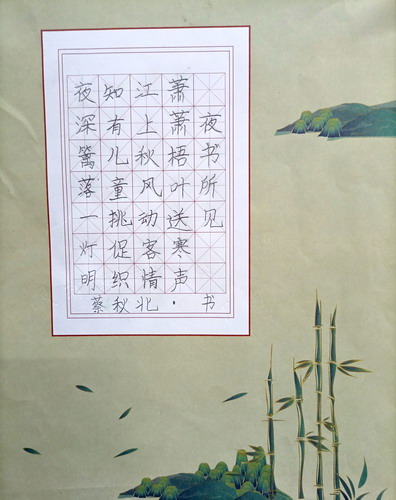 夜书所见
萧萧梧叶送寒声
江上秋风动客情
知有儿童挑促织
夜深篱落一灯明
蔡秋北·书